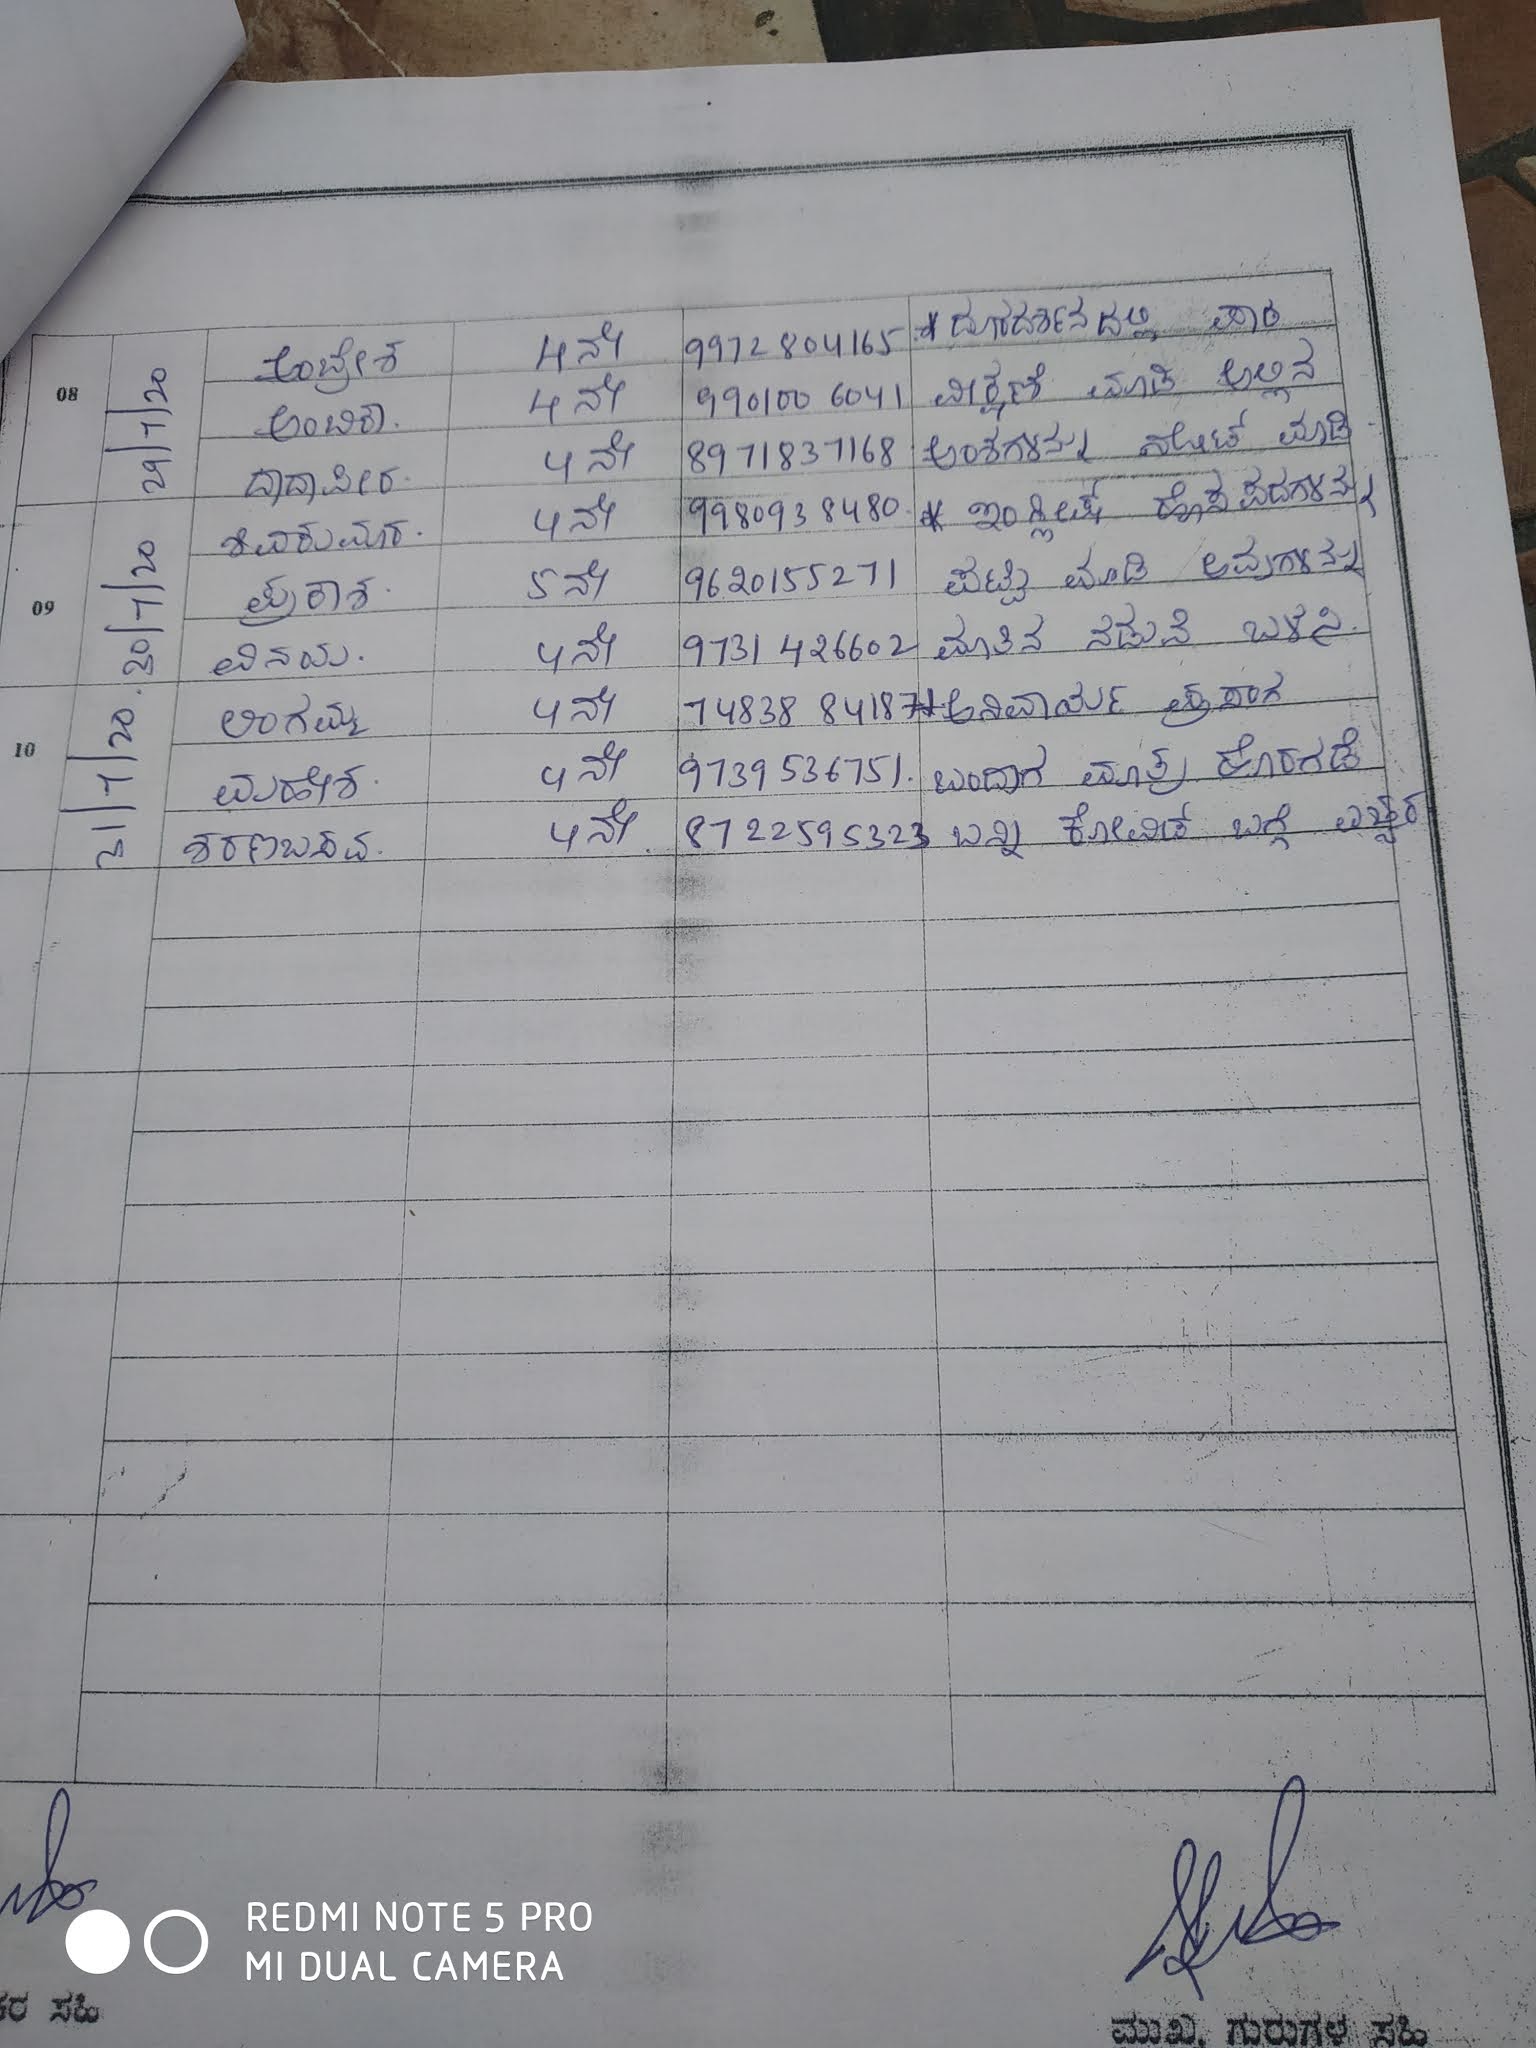 08 29/7/20 ಅಂಬ್ರೇಶ 4ನೇ 9972804165 * ದೂರದರ್ಶನದಲ್ಲಿ ಪಾಠ
ಅಂಬಿಕಾ. 4ನೇ 9901006041 ವೀಕ್ಷಣೆ ಮಾಡಿ ಅಲ್ಲಿನ
ದಾದಾಪೀರ. 4ನೇ 8971837168 ಅಂಶಗಳನ್ನು ನೋಟ್ ಮಾಡಿ
ಶಿವಕುಮಾರ. 4ನೇ 9980938480. * ಇಂಗ್ಲೀಷ್ ಹೊಸ ಪದಗಳನ್ನು
09 20/7/20 ಪ್ರಕಾಶ. 5ನೇ 9620155271 ಪಟ್ಟಿ ಮಾಡಿ ಅವುಗಳನ್ನು
ವಿನಯ. 4ನೇ 9731426602 ಮಾತಿನ ನಡುವೆ ಬಳಸಿ.
10 21/7/20 ಲಿಂಗಮ್ಮ 4ನೇ 7483884187 * ಅನಿವಾರ್ಯ ಪ್ರಸಂಗ
ಮಹೇಶ. 4ನೇ 9739536751. ಬಂದಾಗ ಮಾತ್ರ ಹೊರಗಡೆ
ಶರಣಬಸವ. 4ನೇ. 8722595323 ಬನ್ನಿ ಕೋವಿಡ್ ಬಗ್ಗೆ ಎಚ್ಚರ
REDMI NOTE 5 PRO
MI DUAL CAMERA
ಕರ ಸಹಿ
ಮುಖ್ಯ ಗುರುಗಳ ಸಹಿ